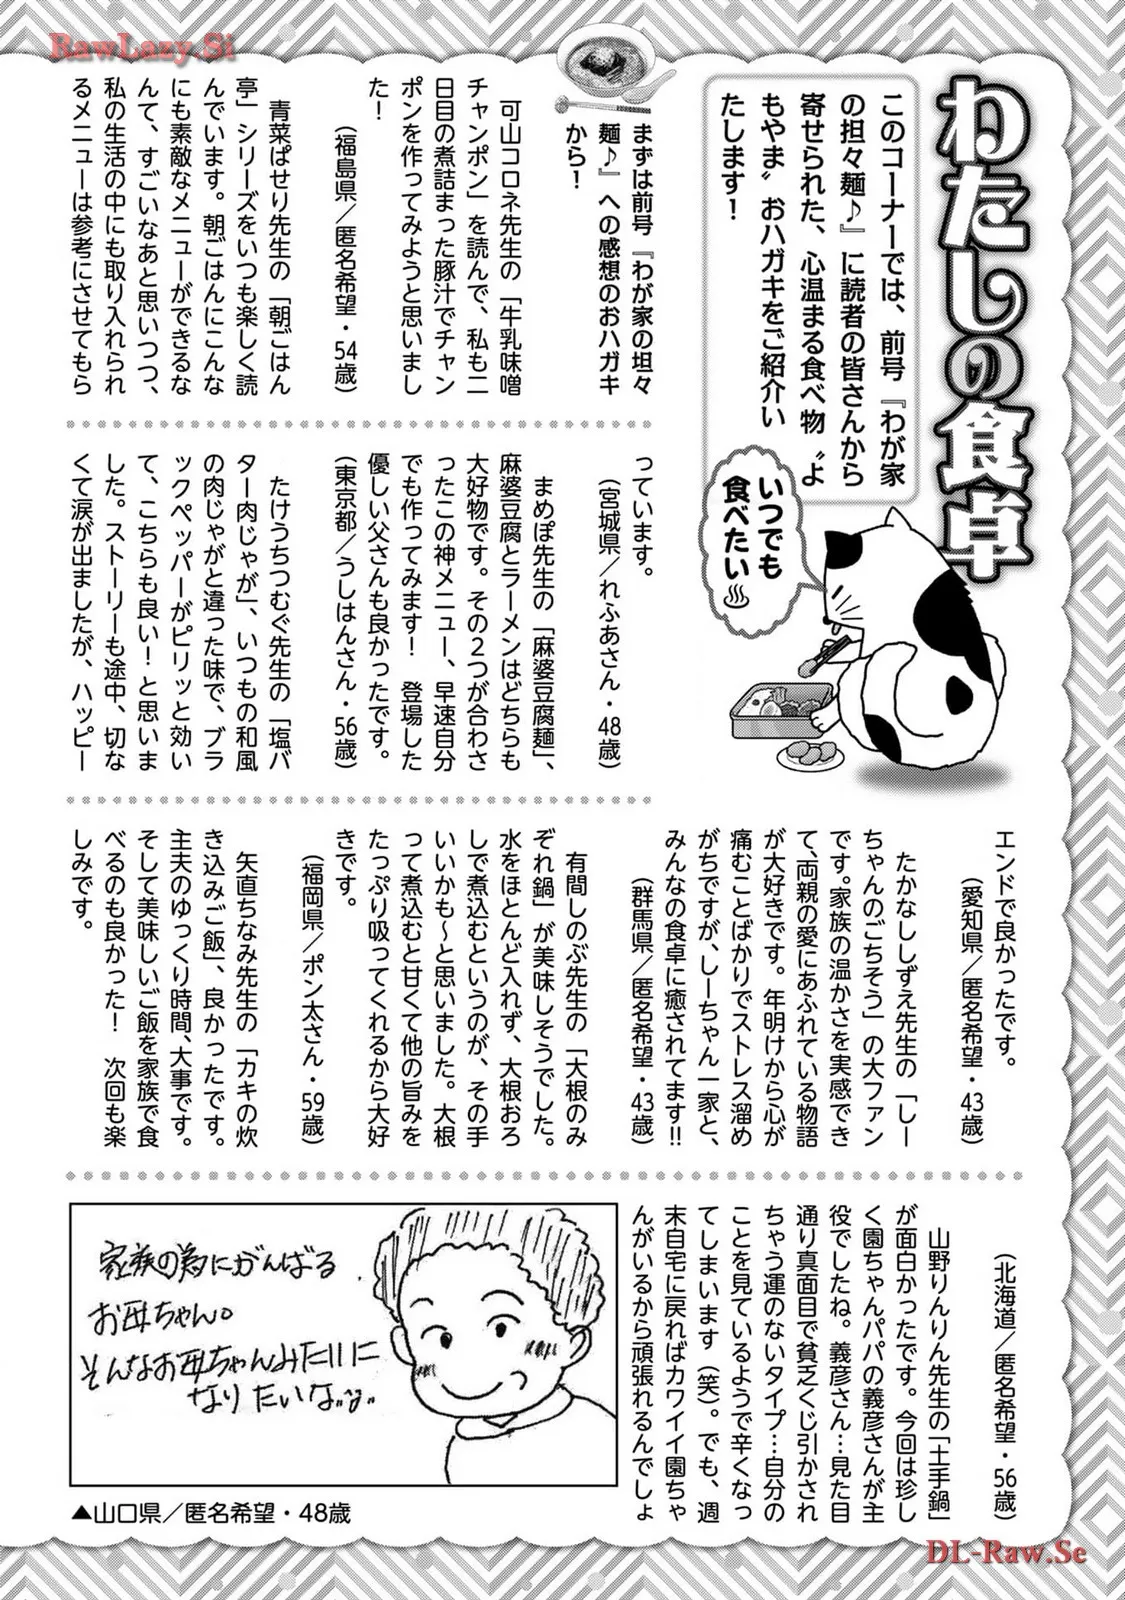 RawLazy.Si
わたしの食卓
このコーナーでは、前号『わが家
の担々麺♪』に読者の皆さんから
寄せられた、心温まる食べ物〝よ
もやま〟おハガキをご紹介い
たします！
いつでも
食べたい♨
まずは前号『わが家の坦々
麺♪』への感想のおハガキ
から！
可山コロネ先生の「牛乳味噌
チャンポン」を読んで、私も二
日目の煮詰まった豚汁でチャン
ポンを作ってみようと思いまし
た！
（福島県／匿名希望・54歳）
青菜ぱせり先生の「朝ごはん
亭」シリーズをいつも楽しく読
んでいます。朝ごはんにこんな
にも素敵なメニューができるな
んて、すごいなあと思いつつ、
私の生活の中にも取り入れられ
るメニューは参考にさせてもら
っています。
（宮城県／れふあさん・48歳）
まめぽ先生の「麻婆豆腐麺」、
麻婆豆腐とラーメンはどちらも
大好物です。その2つが合わさ
ったこの神メニュー、早速自分
でも作ってみます！　登場した
優しい父さんも良かったです。
（東京都／うしはんさん・56歳）
たけうちつむぐ先生の「塩バ
ター肉じゃが」、いつもの和風
の肉じゃがと違った味で、ブラ
ックペッパーがピリッと効い
て、こちらも良い！と思いま
した。ストーリーも途中、切な
くて涙が出ましたが、ハッピー
エンドで良かったです。
（愛知県／匿名希望・43歳）
たかなししずえ先生の「しー
ちゃんのごちそう」の大ファン
です。家族の温かさを実感でき
て、両親の愛にあふれている物語
が大好きです。年明けから心が
痛むことばかりでストレス溜め
がちですが、しーちゃん一家と、
みんなの食卓に癒されてます!!
（群馬県／匿名希望・43歳）
有間しのぶ先生の「大根のみ
ぞれ鍋」が美味しそうでした。
水をほとんど入れず、大根おろ
しで煮込むというのが、その手
いいかも〜と思いました。大根
って煮込むと甘くて他の旨みを
たっぷり吸ってくれるから大好
きです。
（福岡県／ポン太さん・59歳）
矢直ちなみ先生の「カキの炊
き込みご飯」、良かったです。
主夫のゆっくり時間、大事です。
そして美味しいご飯を家族で食
べるのも良かった！　次回も楽
しみです。
（北海道／匿名希望・56歳）
山野りんりん先生の「土手鍋」
が面白かったです。今回は珍し
く園ちゃんパパの義彦さんが主
役でしたね。義彦さん…見た目
通り真面目で貧乏くじ引かされ
ちゃう運のないタイプ…自分の
ことを見ているようで辛くなっ
てしまいます（笑）。でも、週
末自宅に戻ればカワイイ園ちゃ
んがいるから頑張れるんでしょ
家族の為にがんばる
お母ちゃん。
そんなお母ちゃんみたいに
なりたいな
▲山口県／匿名希望・48歳
DL-Raw.Se